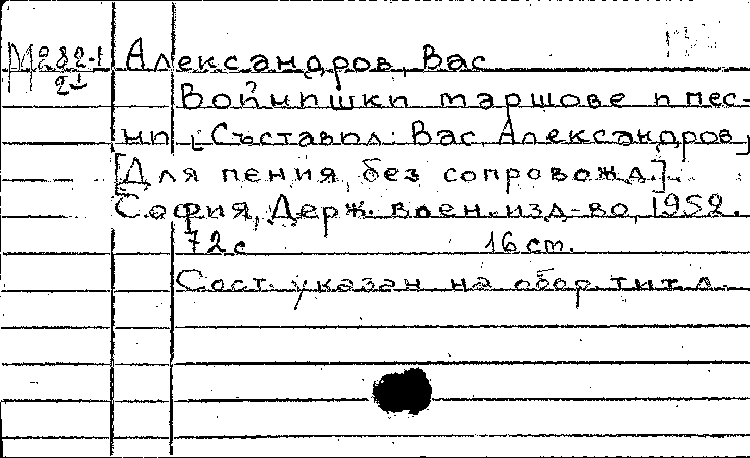 М282-1 Александров, Вас
21
Войнишки маршове и пес-
ни [Съставил: Вас. Александров]
[Для пения, без сопровожд.].
София, Держ. воен. изд-во, 1952.
72 с 16 ст.
Сост. указан на обор. тит. л.